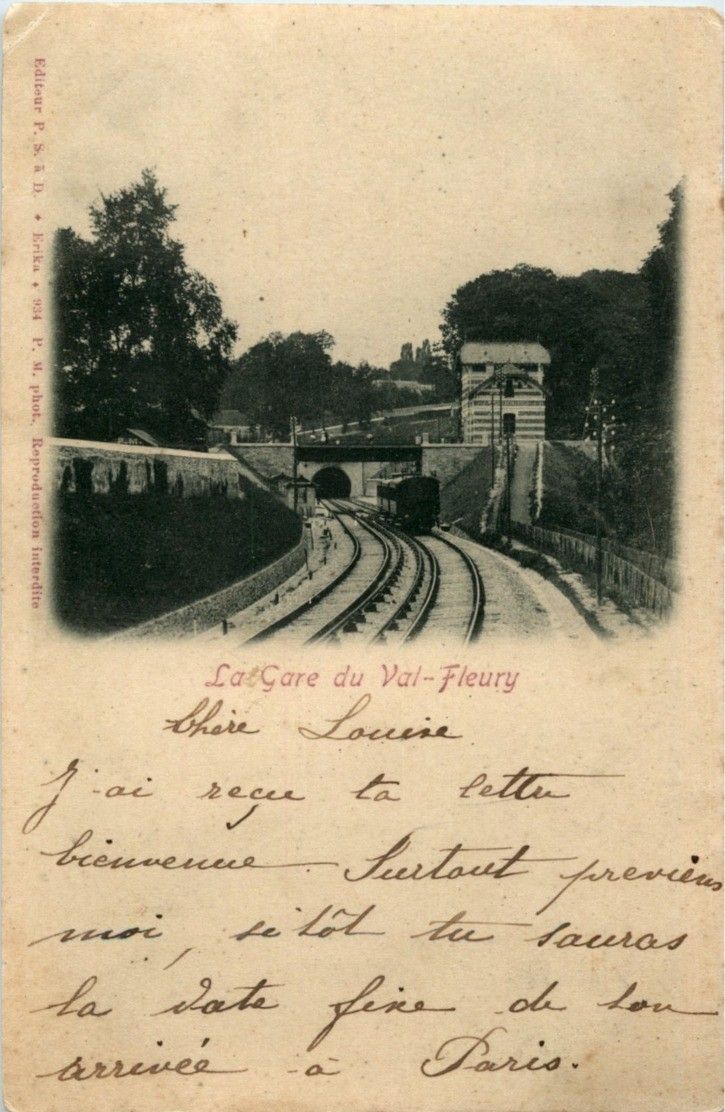 Editeur P. S. à D. ✦ Erika ✦ 934 P. M. phot. Reproduction interdite
La Gare du Val-Fleury
Chère Louise
J'ai reçu ta lettre
bienvenue. Surtout previens
moi, sitôt tu sauras
la date fixe de ton
arrivée à Paris.